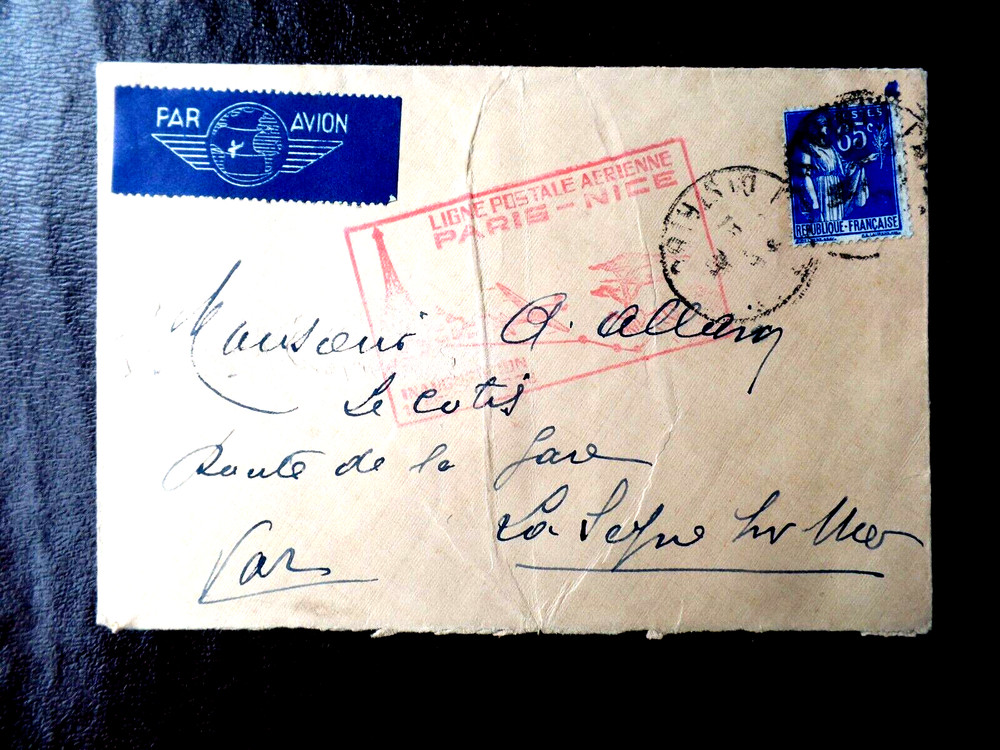 PAR AVION
LIGNE POSTALE AERIENNE
PARIS-NICE
INAUGURATION
POSTES
65c
REPUBLIQUE·FRANÇAISE
Monsieur A. Allary
Le Cotis
Route de la Gare
La Seyne sur Mer
Var